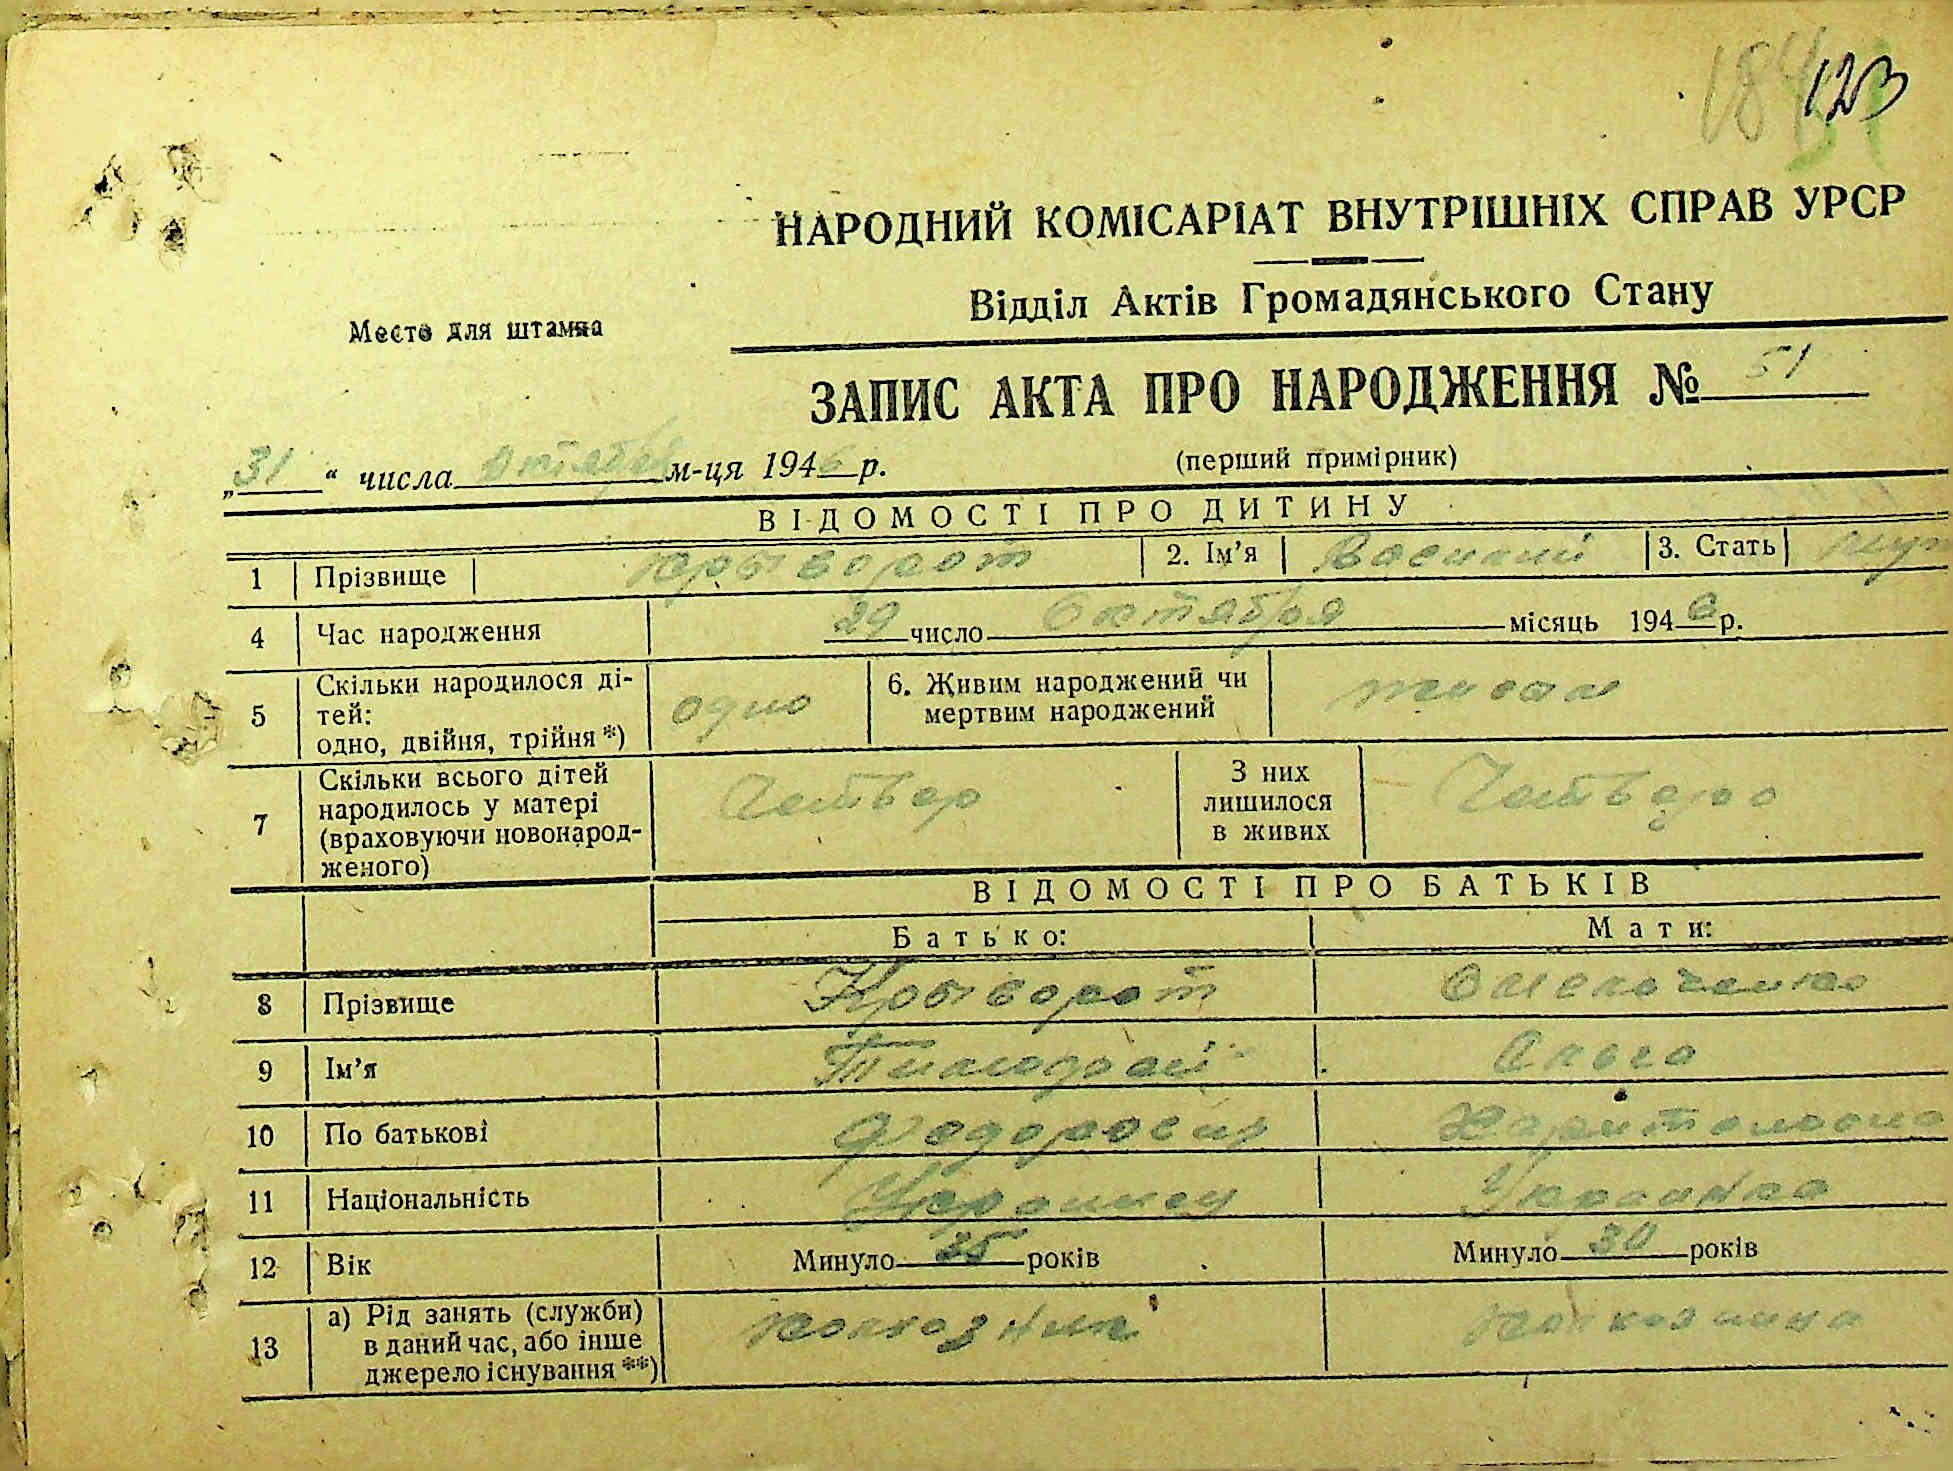 123
НАРОДНИЙ КОМІСАРІАТ ВНУТРІШНІХ СПРАВ УРСР
Відділ Актів Громадянського Стану
Место для штампа
ЗАПИС АКТА ПРО НАРОДЖЕННЯ № 51
„31“ числа Октября м-ця 1946 р.
(перший примірник)
ВІДОМОСТІ ПРО ДИТИНУ
1 Прізвище Крыворот 2. Ім’я Василий 3. Стать муж
4 Час народження 29 число Октября місяць 1946 р.
5 Скільки народилося ді-
тей:
одно, двійня, трійня *) одно 6. Живим народжений чи
мертвим народжений живым
7 Скільки всього дітей
народилось у матері
(враховуючи новонарод-
женого) Четверо З них
лишилося
в живих Четверо
ВІДОМОСТІ ПРО БАТЬКІВ
Батько: Мати:
8 Прізвище Крыворот
9 Ім’я Ольга
10 По батькові Федорович Харитоновна
11 Національність Украинец Украинка
12 Вік Минуло 35 років Минуло 30 років
13 а) Рід занять (служби)
в даний час, або інше
джерело існування **) Колхозник Колхозница